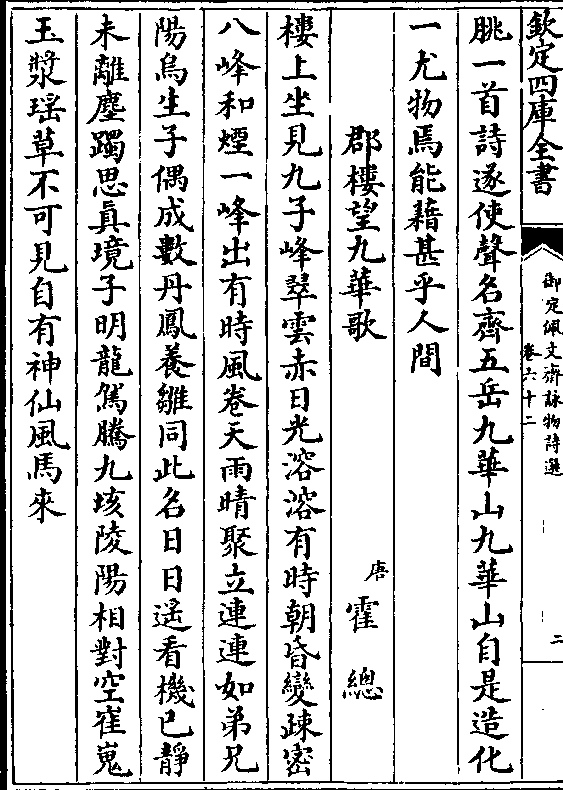 欽定四庫全書
御定佩文齋詠物詩選
卷六十二
二
眺一首詩遂使聲名齊五岳九華山九華山自是造化
一尤物焉能藉甚乎人間
郡樓望九華歌
唐
霍總
樓上坐見九子峰翠雲赤日光溶溶有時朝昏變疎密
八峰和煙一峰出有時風卷天雨晴聚立連連如弟兄
陽烏生子偶成數丹鳳養雛同此名日日遥看機已静
未離塵躅思眞境子明龍駕騰九垓陵陽相對空崔嵬
玉漿瑶草不可見自有神仙風馬來